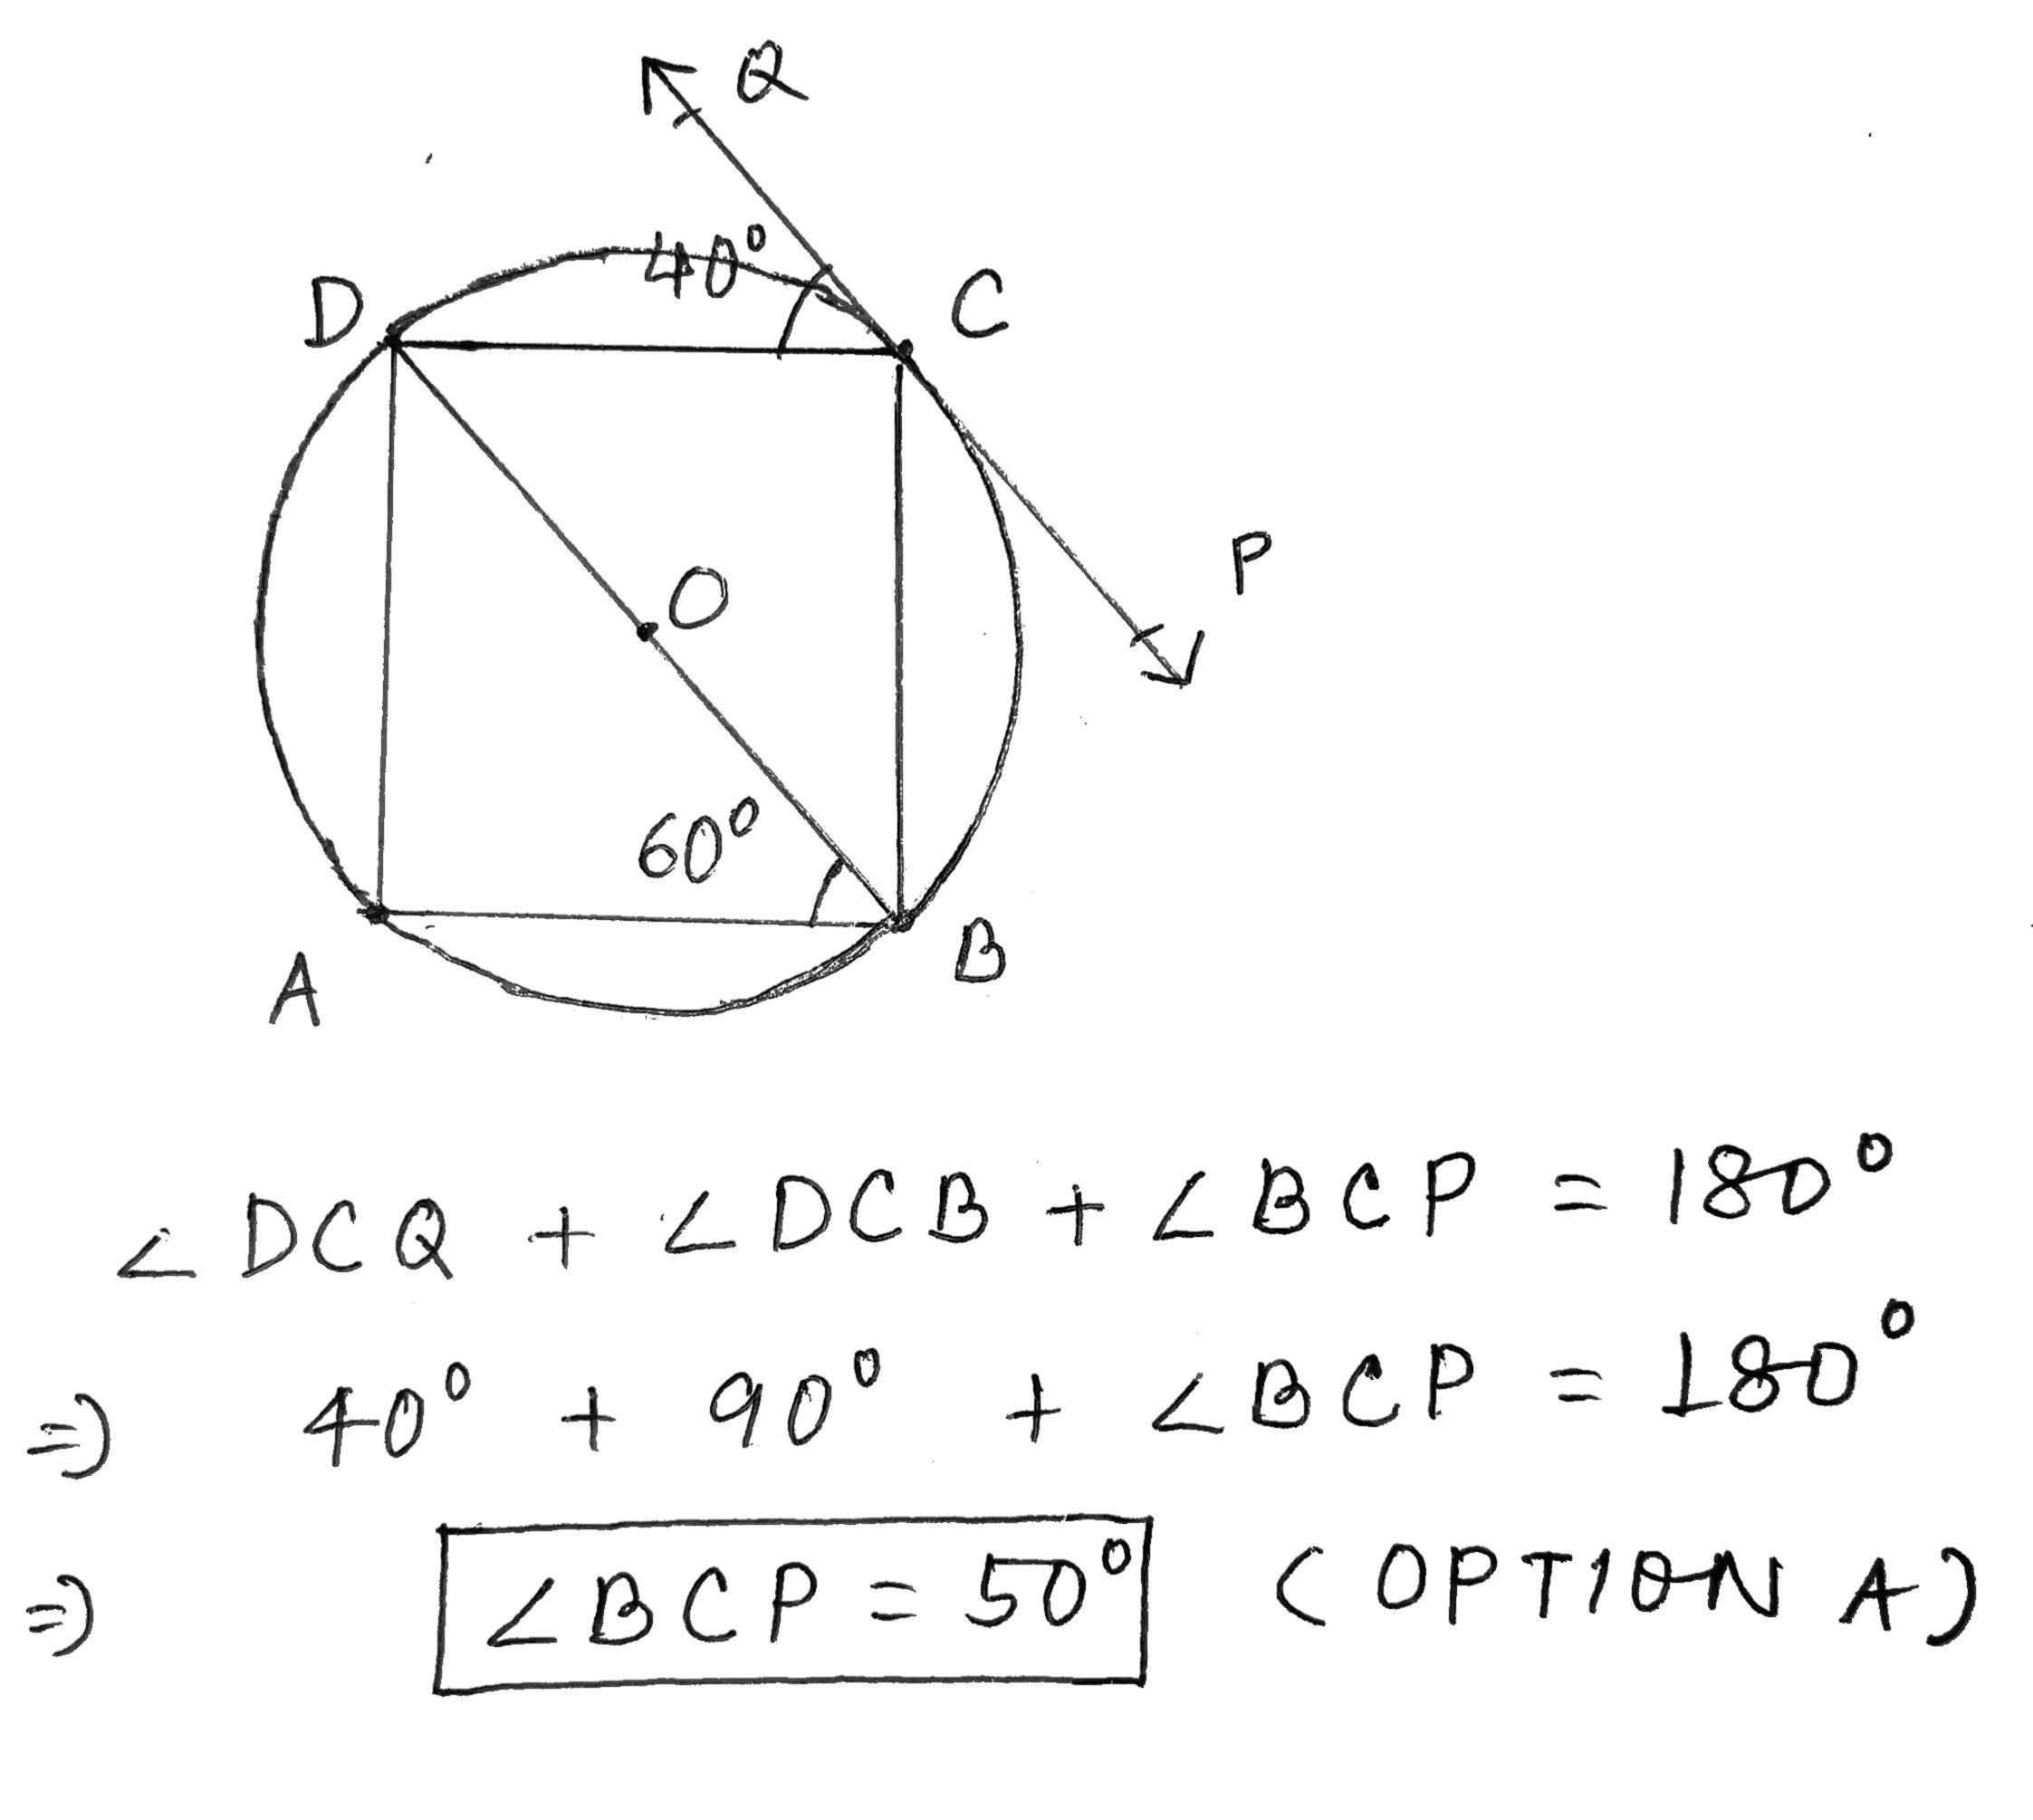 Q
40°
D
C
P
O
60°
A
B
∠DCQ + ∠DCB + ∠BCP = 180°
⇒ 40° + 90° + ∠BCP = 180°
⇒ ∠BCP = 50° (OPTION A)